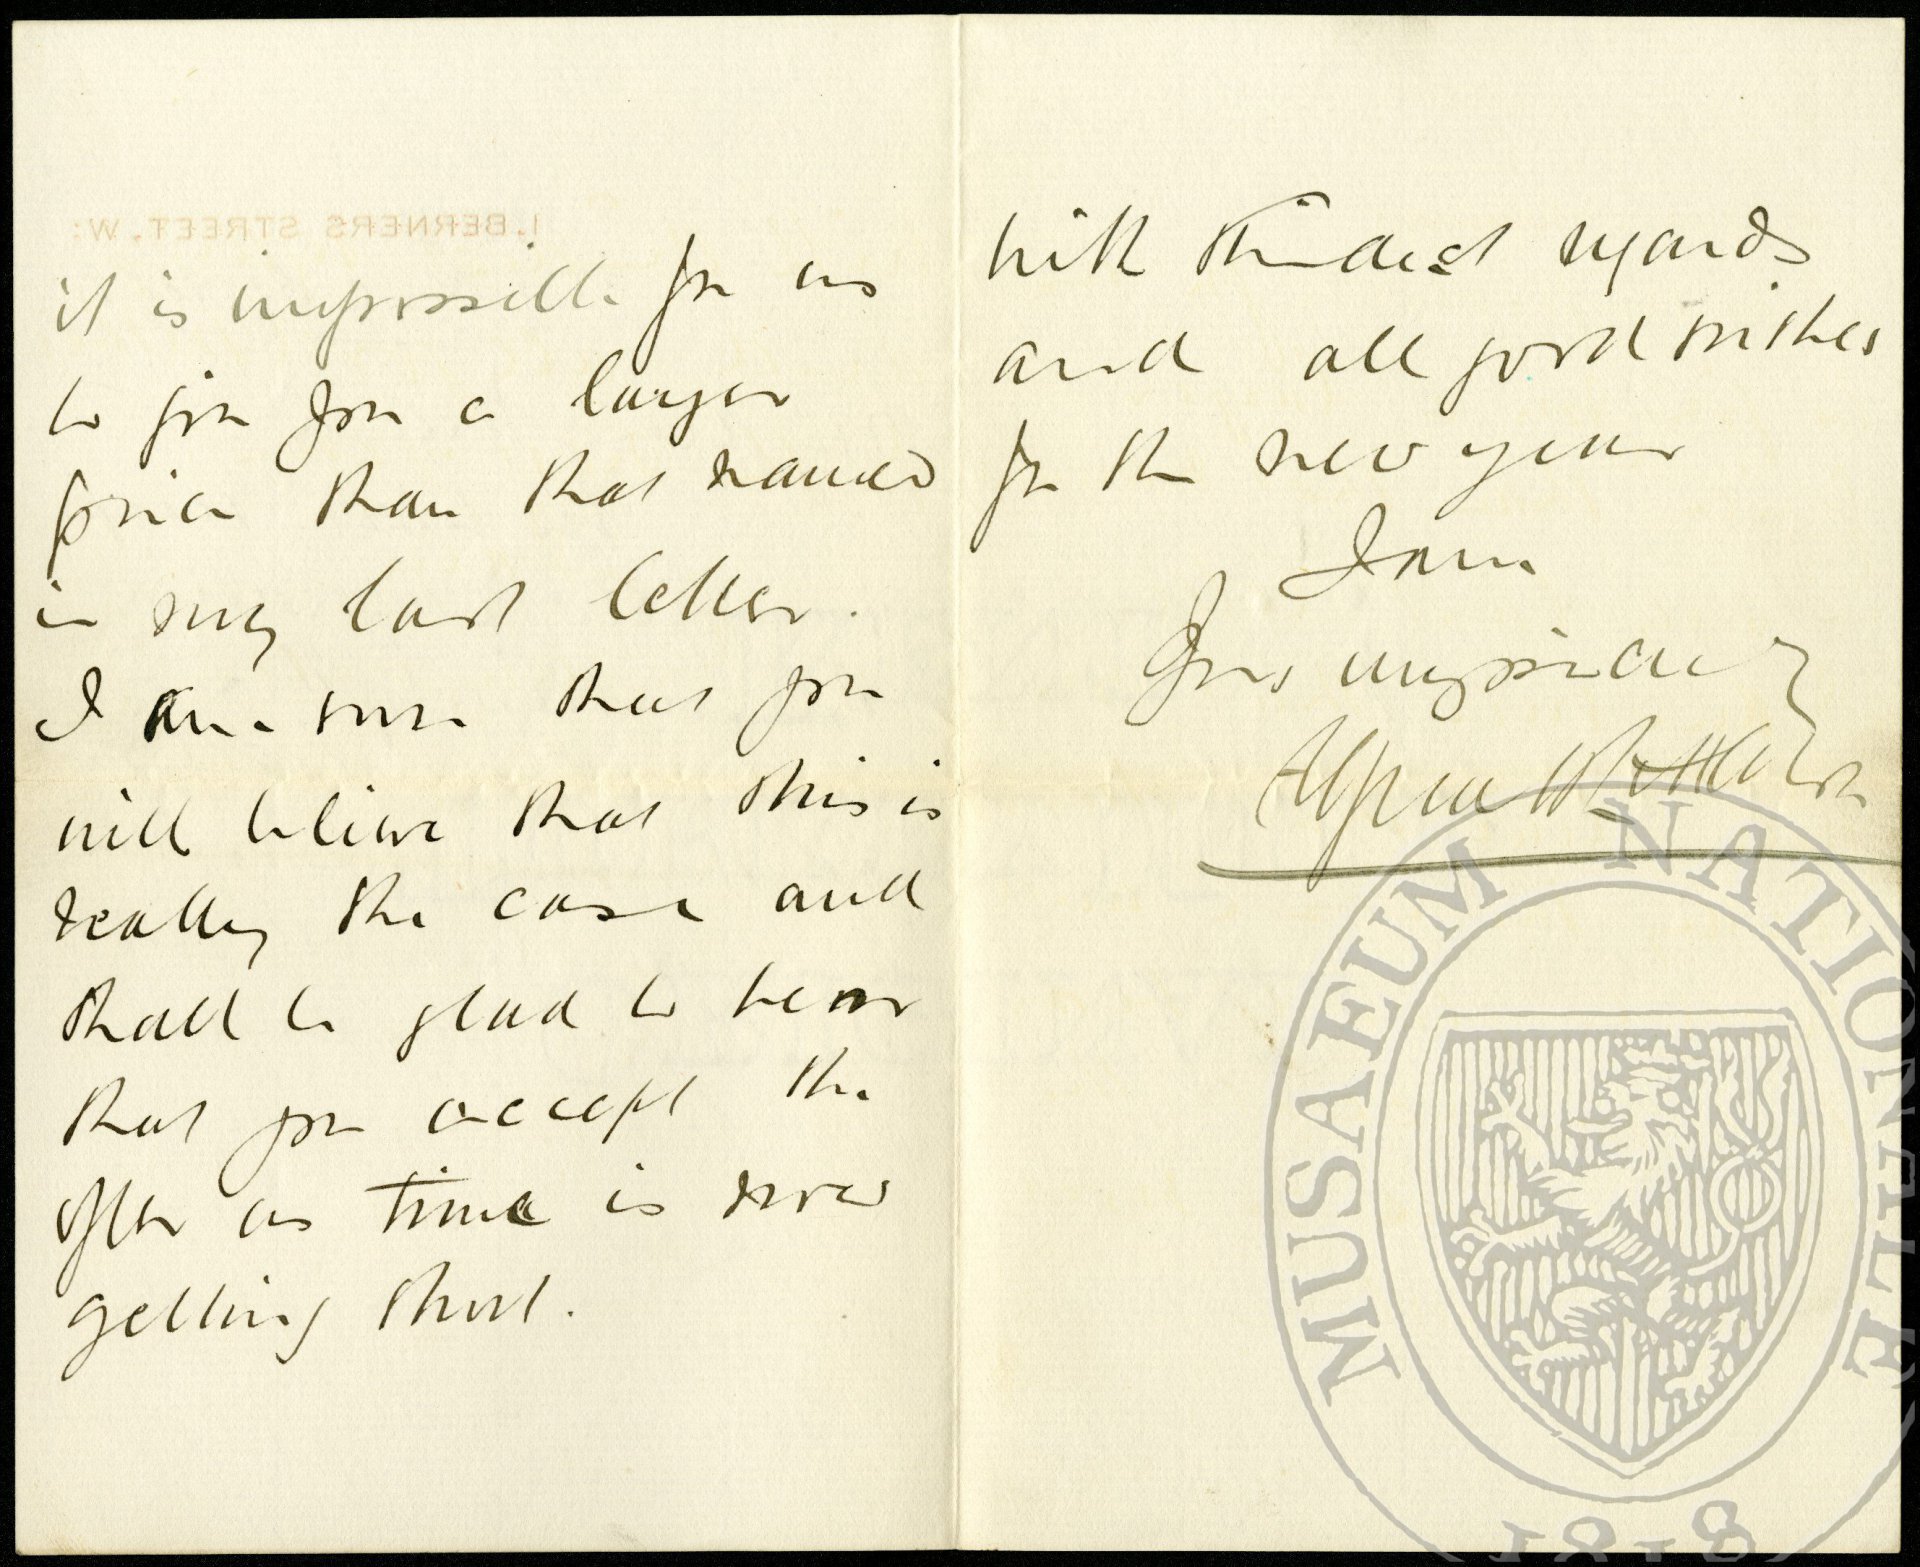 1. BERNERS STREET. W:
it is impossible for us
to give you a larger
price than that named
in my last letter.
I am sure that you
will believe that this is
really the case and
shall be glad to hear
that you accept the
offer as time is now
getting short.
with kindest regards
and all good wishes
for the new year
I am
Yours very sincerely
Alfred H Littleton
MUSAEUM NATIONALE
1818